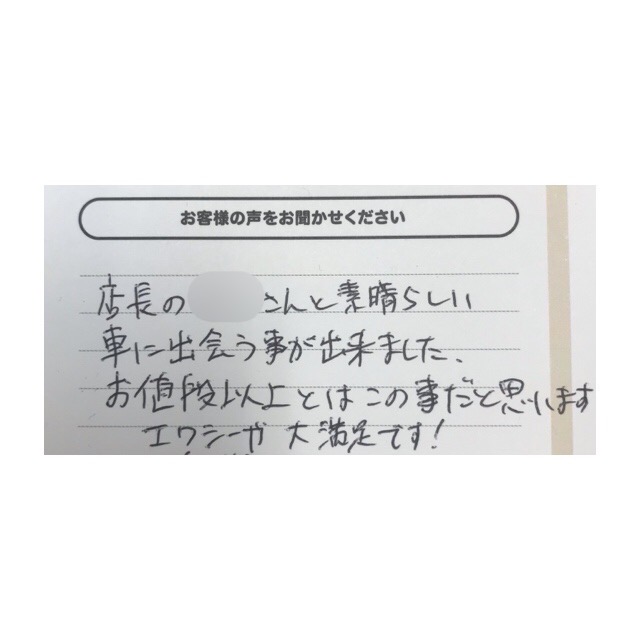 お客様の声をお聞かせください
店長の さんと素晴らしい
車に出会う事が出来ました、
お値段以上とはこの事だと思います
大満足です!